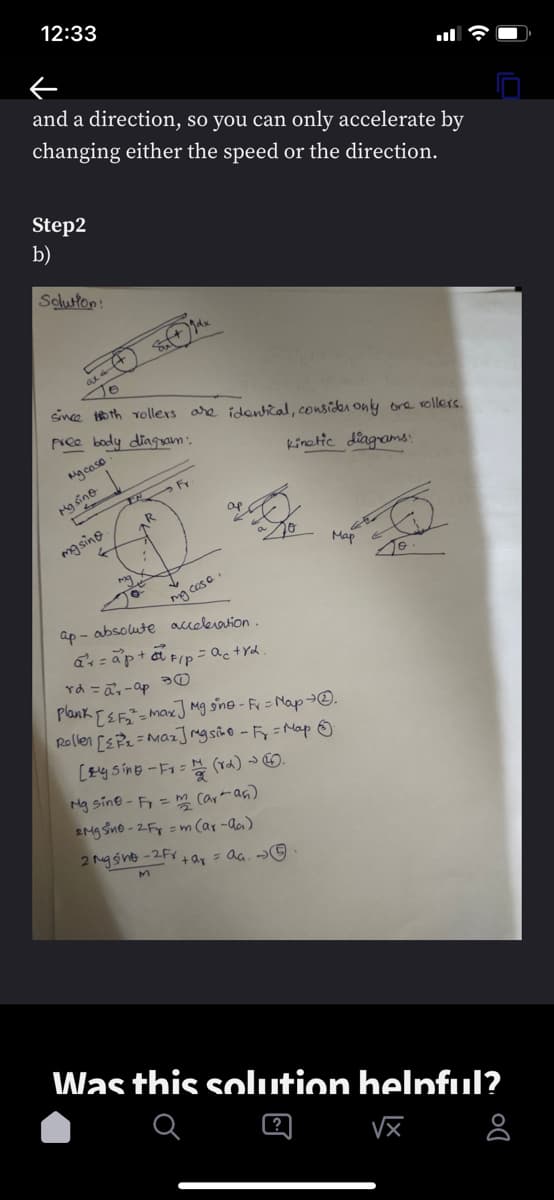 12:33
and a direction, so you can only accelerate by
changing either the speed or the direction.
Step2
b)
Solution:
θ
Since both rollers are identical, consider only one rollers.
Free body diagram:
kinetic diagrams:
Mg cosθ
Mg sinθ
Fr
R
mg sinθ
mg
θ
mg cosθ.
ap
a
θ
Map
θ.
ap - absolute acceleration.
= ac + rα.
rα = ar - ap → ①
Plank [ΣFx = max] Mg sinθ - Fr = Map → ②.
Roller [ΣFx = Max] Mg sinθ - Fr = Map ③
Mg sinθ - Fr = m/2
2Mg sinθ - 2Fr = m
2Mg sinθ - 2Fr
M
→ ⑤.
Was this solution helpful?
?
√x